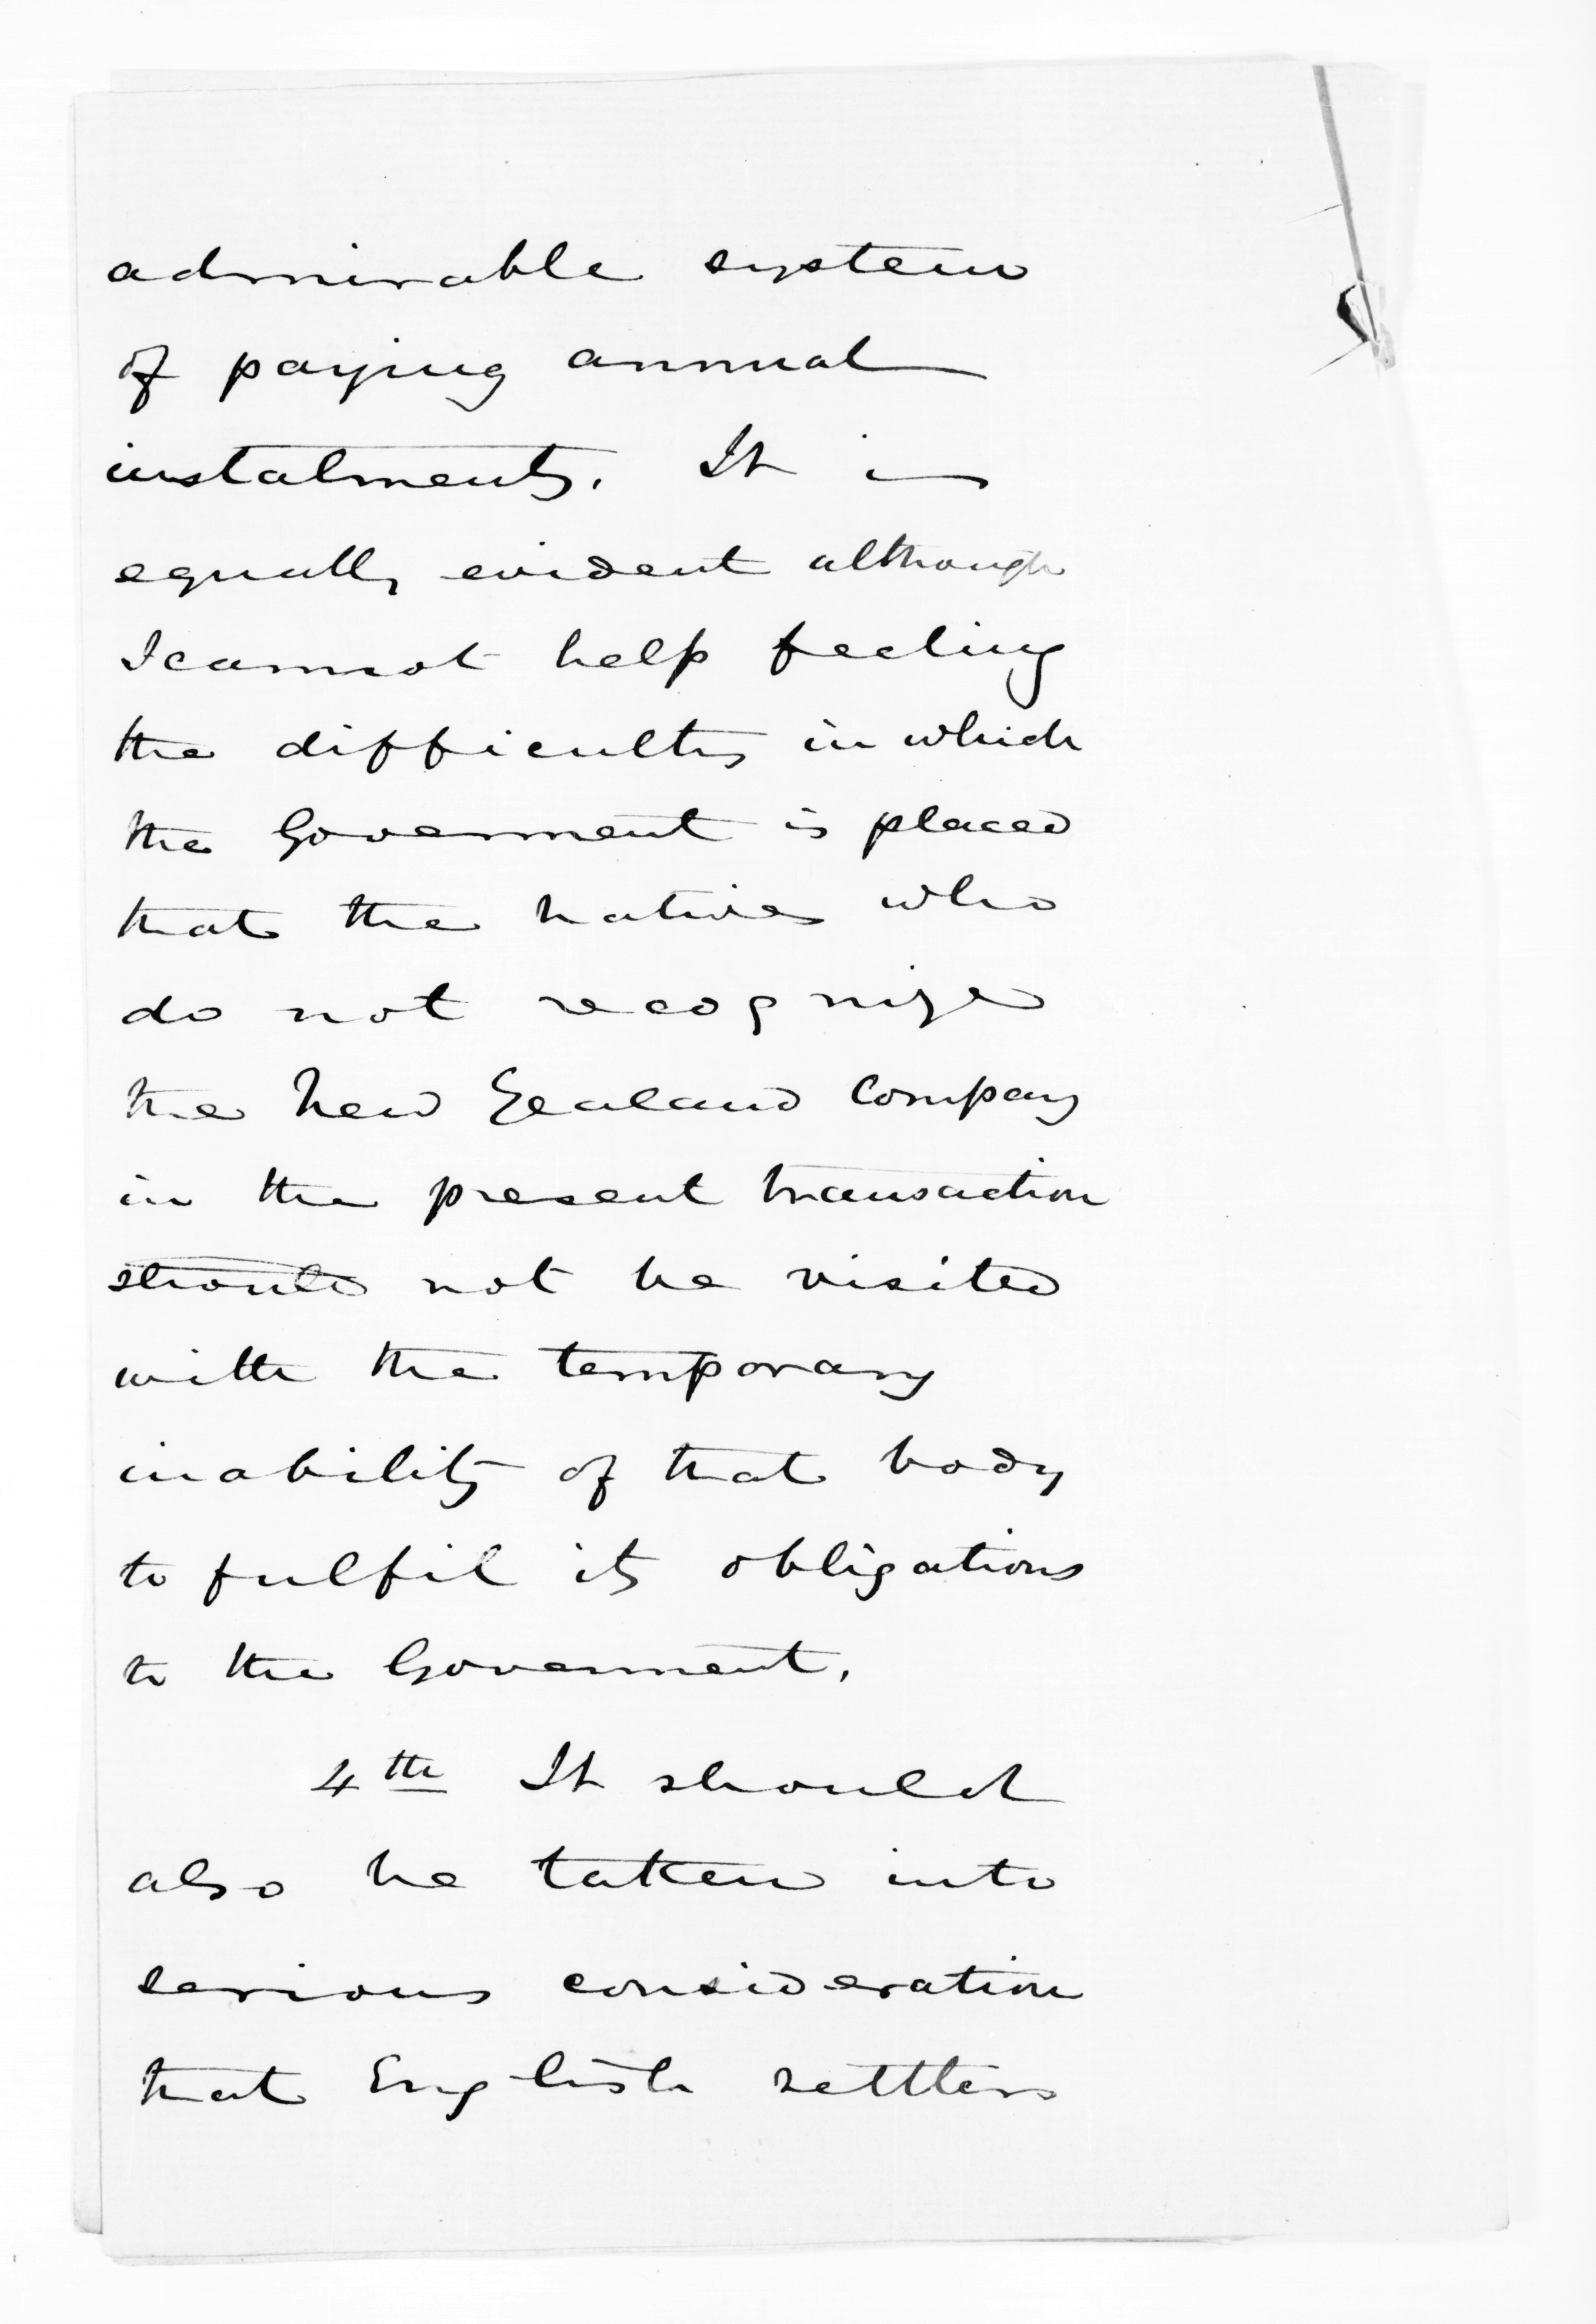 admirable system
of paying annual
instalments. It is
equally evident although
I cannot help feeling
the difficulty in which
the Government is placed
that the natives who
do not recognize
the New Zealand Company
in the present transaction
should not be visited
with the temporary
inability of that body
to fulfil its obligations
to the Government.
4th It should
also be taken into
serious consideration
that English settlers